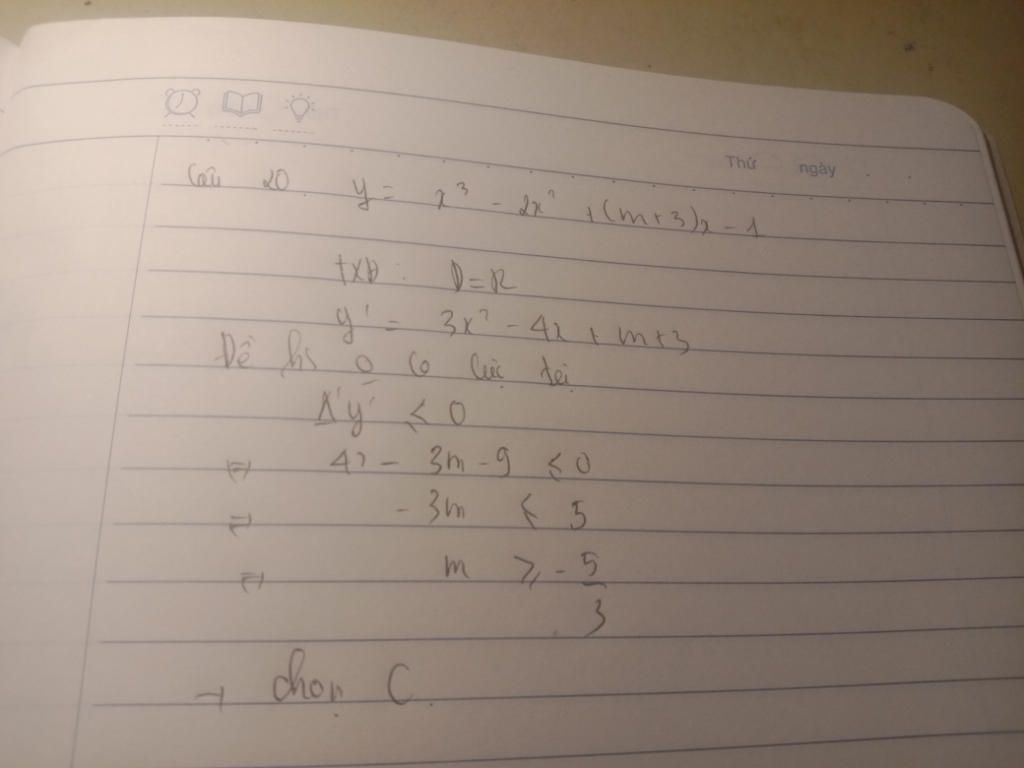 Thứ ngày
Câu 20 y = x³ - 2x² + (m+3)x - 1
TXĐ : D = R
y' = 3x² - 4x + m+3
Để hs o có cực trị
Δ'y' ≤ 0
⇔ 4 - 3m - 9 ≤ 0
⇔ - 3m ≤ 5
⇔ m ≥ - 5/3
→ chọn C.